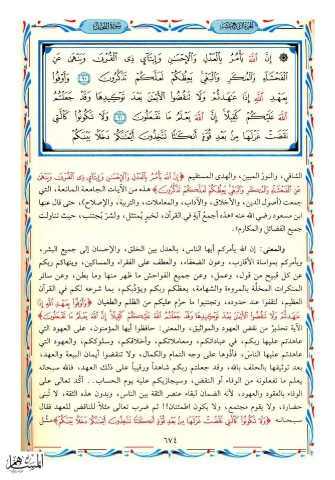 الجزء الرابع عشر
سورة النحل
۞ إِنَّ ٱللَّهَ يَأْمُرُ بِٱلْعَدْلِ وَٱلْإِحْسَٰنِ وَإِيتَآئِ ذِى ٱلْقُرْبَىٰ وَيَنْهَىٰ عَنِ
ٱلْفَحْشَآءِ وَٱلْمُنكَرِ وَٱلْبَغْىِ يَعِظُكُمْ لَعَلَّكُمْ تَذَكَّرُونَ ٩٠ وَأَوْفُوا۟
بِعَهْدِ ٱللَّهِ إِذَا عَٰهَدتُّمْ وَلَا تَنقُضُوا۟ ٱلْأَيْمَٰنَ بَعْدَ تَوْكِيدِهَا وَقَدْ جَعَلْتُمُ
ٱللَّهَ عَلَيْكُمْ كَفِيلًا إِنَّ ٱللَّهَ يَعْلَمُ مَا تَفْعَلُونَ ٩١ وَلَا تَكُونُوا۟ كَٱلَّتِى
نَقَضَتْ غَزْلَهَا مِنۢ بَعْدِ قُوَّةٍ أَنكَٰثًا تَتَّخِذُونَ أَيْمَٰنَكُمْ دَخَلًۢا بَيْنَكُمْ
الشافي، والنورُ المبين، والهدى المستقيم ﴿إِنَّ ٱللَّهَ يَأْمُرُ بِٱلْعَدْلِ وَٱلْإِحْسَٰنِ وَإِيتَآئِ ذِى ٱلْقُرْبَىٰ وَيَنْهَىٰ
عَنِ ٱلْفَحْشَآءِ وَٱلْمُنكَرِ وَٱلْبَغْىِ يَعِظُكُمْ لَعَلَّكُمْ تَذَكَّرُونَ﴾ هذه من الآيات الجامعة المانعة، التي
جمعت (أصول الدين، والأخلاق، والآداب، والمعاملات، والتربية، والإصلاح)، حتى قال عنها
ابن مسعود رضي الله عنه «هذه أجمعُ آيةٍ في القرآن، لخيرٍ يُمتثل، ولشرٍّ يُجتنب، حيث تناولت
جميع الفضائل والمكارم».
والمعنى: إن الله يأمركم أيها الناس، بالعدل بين الخلق، والإحسان إلى جميع البشر،
ويأمركم بمواساة الأقارب، وعون الضعفاء، والعطف على الفقراء والمساكين، وينهاكم ربكم
عن كل قبيح من قول، وعمل، وعن جميع الفواحش ما ظهر منها وما بطن، وعن سائر
المنكرات المخلَّة بالمروءة والشهامة، يعظكم ربكم ويؤدّبكم، بما شرعه لكم في القرآن
العظيم، لتقفوا عند حدوده، وتجتنبوا ما حرَّم عليكم من الظلم والطغيان ﴿وَأَوْفُوا۟ بِعَهْدِ ٱللَّهِ إِذَا
عَٰهَدتُّمْ وَلَا تَنقُضُوا۟ ٱلْأَيْمَٰنَ بَعْدَ تَوْكِيدِهَا وَقَدْ جَعَلْتُمُ ٱللَّهَ عَلَيْكُمْ كَفِيلًا إِنَّ ٱللَّهَ يَعْلَمُ مَا تَفْعَلُونَ﴾
الآية تحذيرٌ من نقض العهود والمواثيق، والمعنى: حافظوا أيها المؤمنون، على العهود التي
عاهدتم عليها ربكم، في عباداتكم، ومعاملاتكم، وأخلاقكم، وسلوككم، والعهود التي
عاهدتم عليها الناس، فأدُّوها على وجه التمام والكمال، ولا تنقضوا أيمان البيعة والعهد،
بعد توثيقها بالحلف بالله، وقد جعلتم ربكم شاهداً ورقيباً على ذلك العهد، فالله سبحانه
يعلم ما تفعلونه من الوفاء أو النقض، وسيجازيكم عليه يوم الحساب.. أكَّد تعالى على
الوفاء بالعقود والعهود، لأنه الضمان لبقاء عنصر الثقة بين الناس، وبدون هذه الثقة، لا تُبنى
حضارة، ولا يقوم مجتمع، ولا يكون اطمئنان!! ثم ضرب تعالى مثلاً للناقض للعهد فقال
سبحانه ﴿وَلَا تَكُونُوا۟ كَٱلَّتِى نَقَضَتْ غَزْلَهَا مِنۢ بَعْدِ قُوَّةٍ أَنكَٰثًا تَتَّخِذُونَ أَيْمَٰنَكُمْ دَخَلًۢا بَيْنَكُمْ﴾ مثَّل
٦٧٤